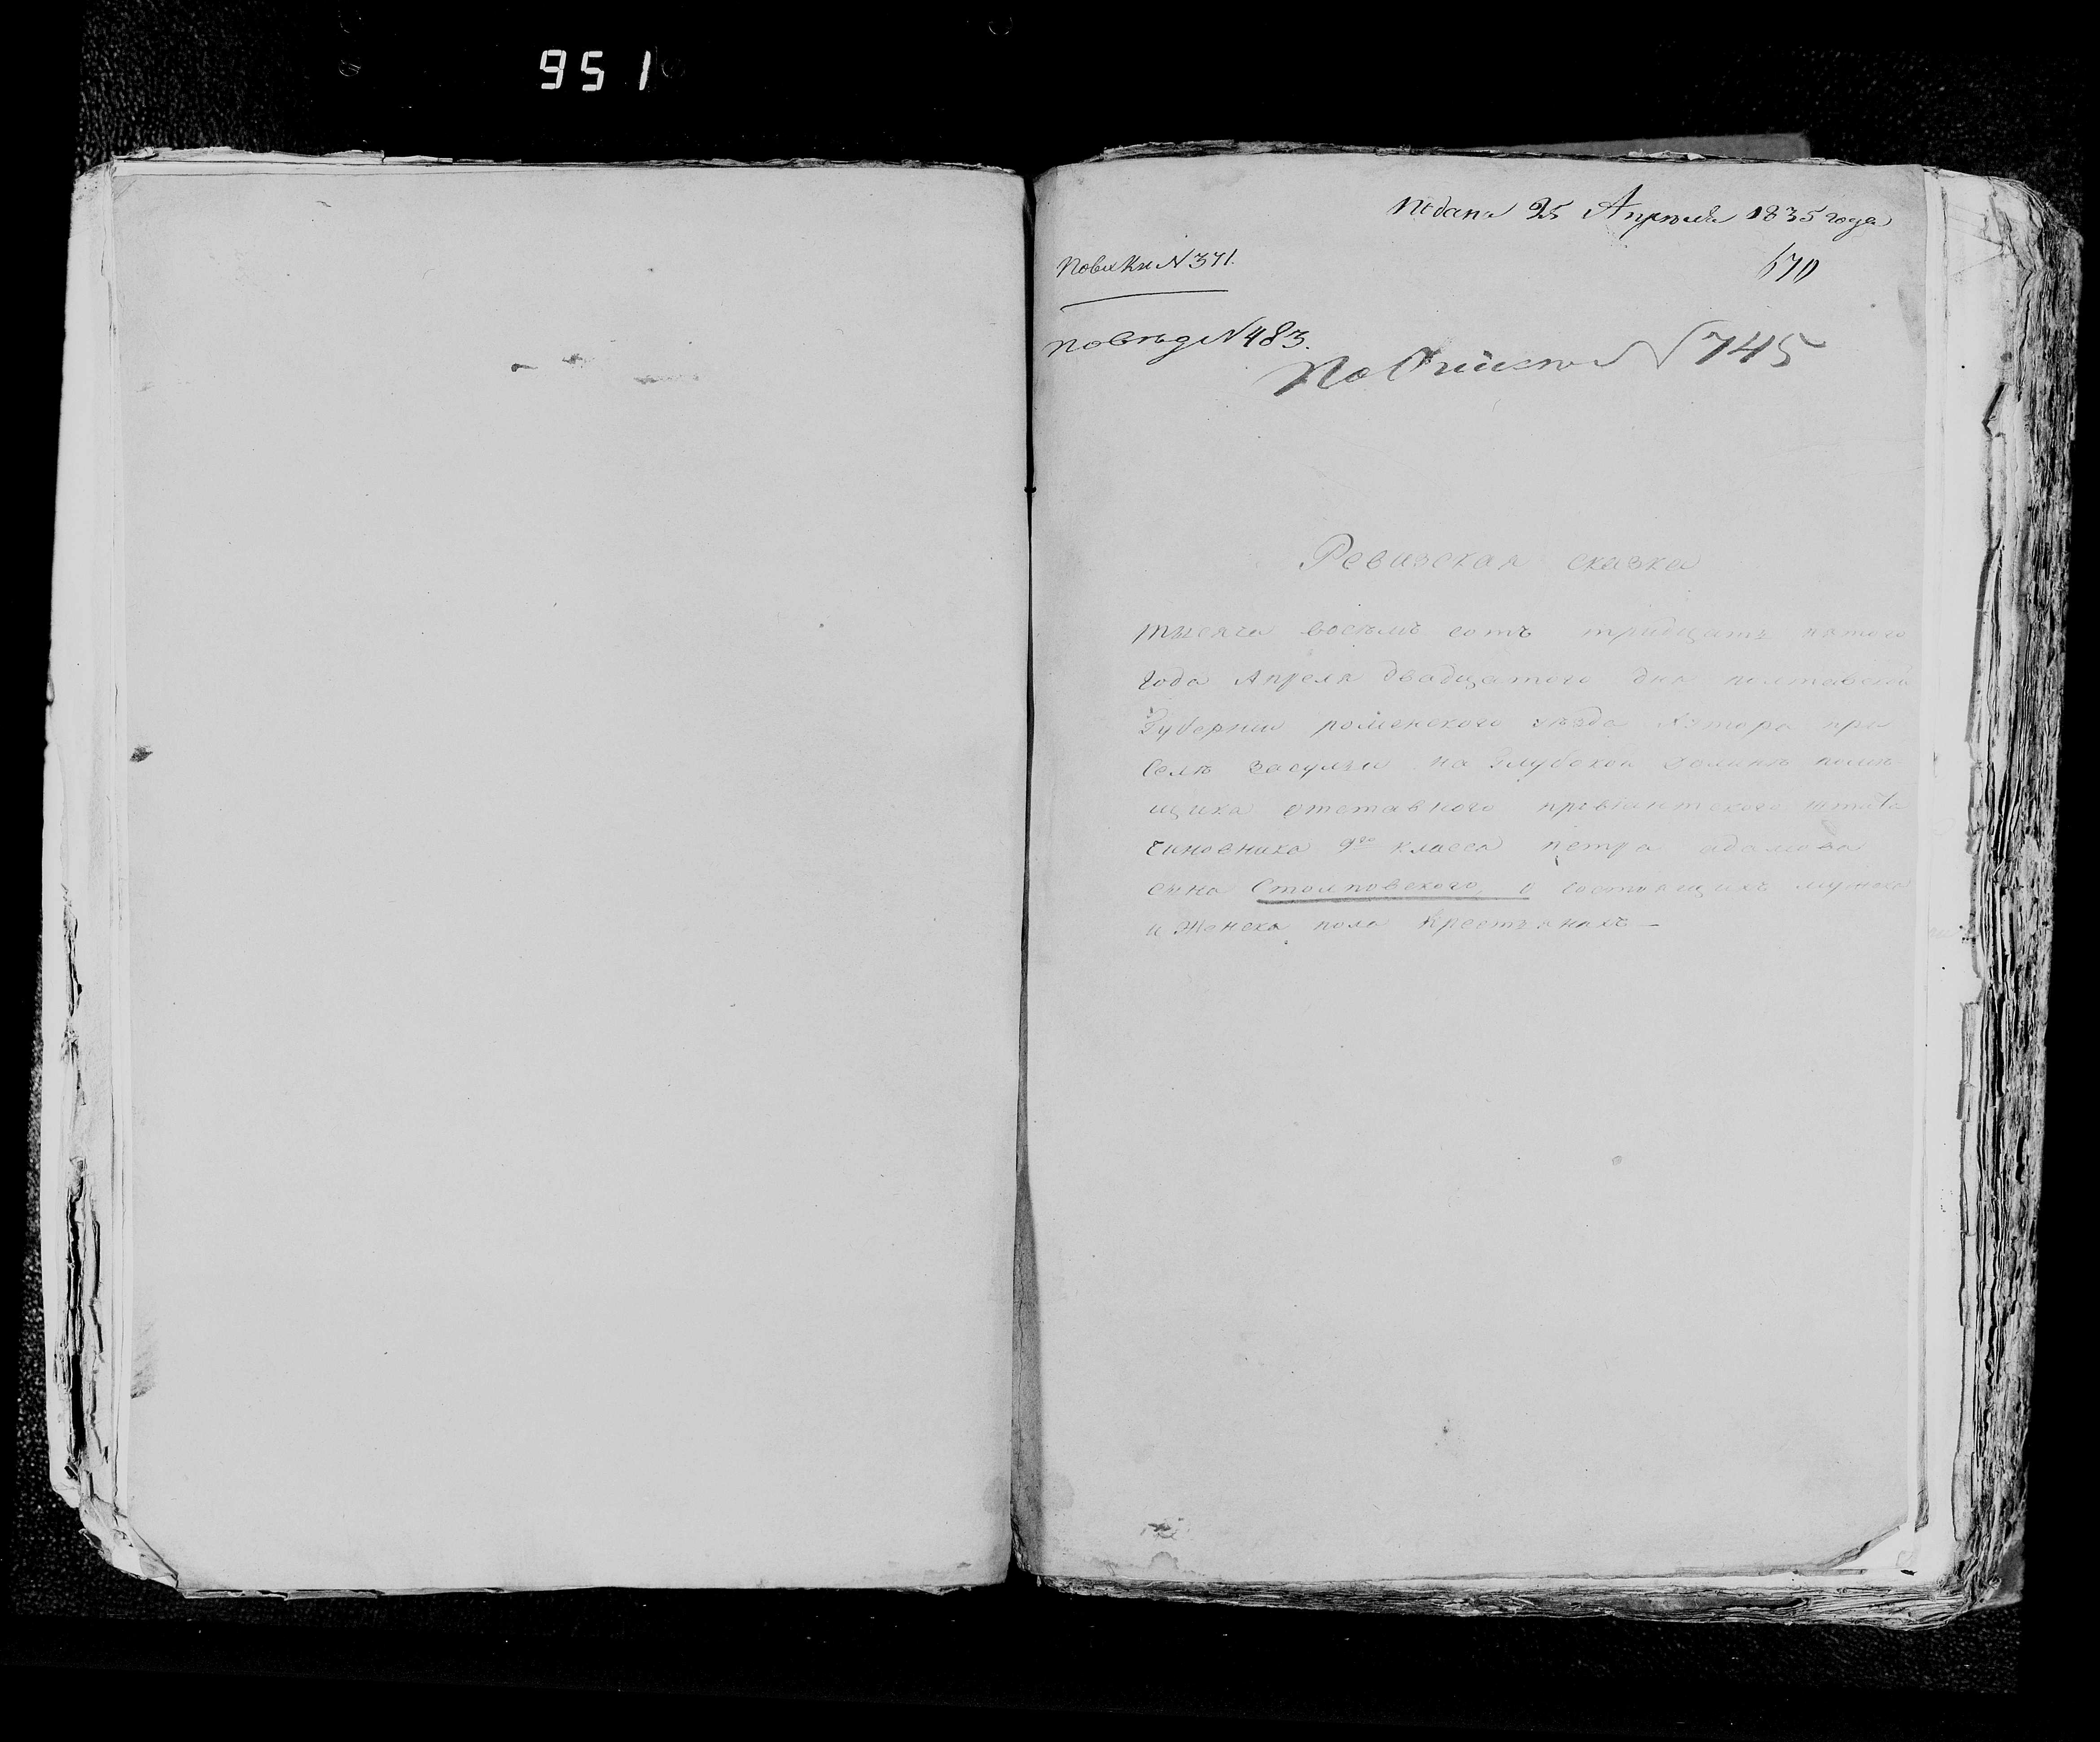 951
Подана 25 Апреля 1835 года
По вх Кн N 371.
670
По Вѣд N 483.
По Описи N 745
Ревизская сказка
тысяча восемъ сотъ тридцать пятого
года Апреля двадцатого дня полтавской
Губернии роменского уѣзда хутора при
селѣ засульи на Глубокой долинѣ помѣ
щика отставного провіантского штата
Чиновника 9го класса петра адамова
сына Столповского, о состоящихъ мужска
и женска пола крестьянахъ —